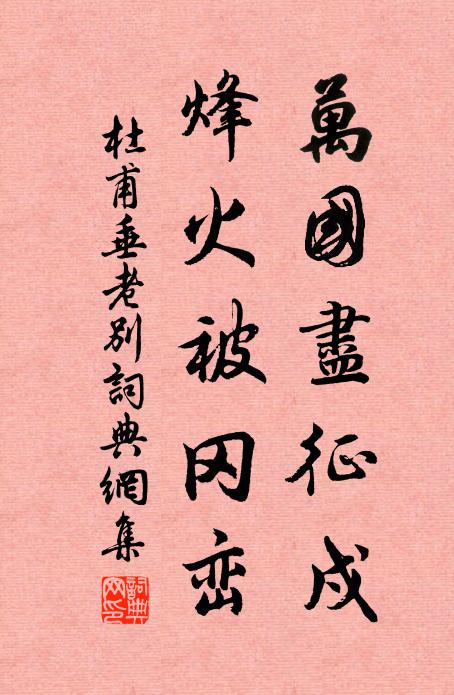 萬國盡征戍
烽火被冈峦
杜甫垂老别詞典網集
詞典网印